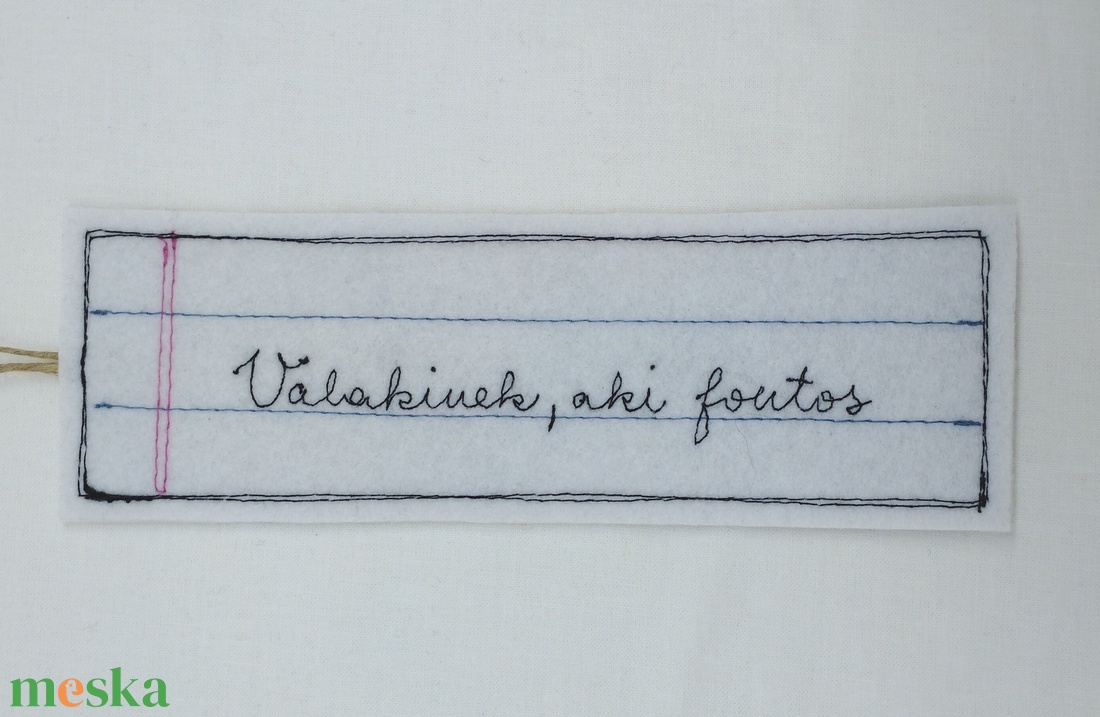 Valakinek, aki fontos
meska